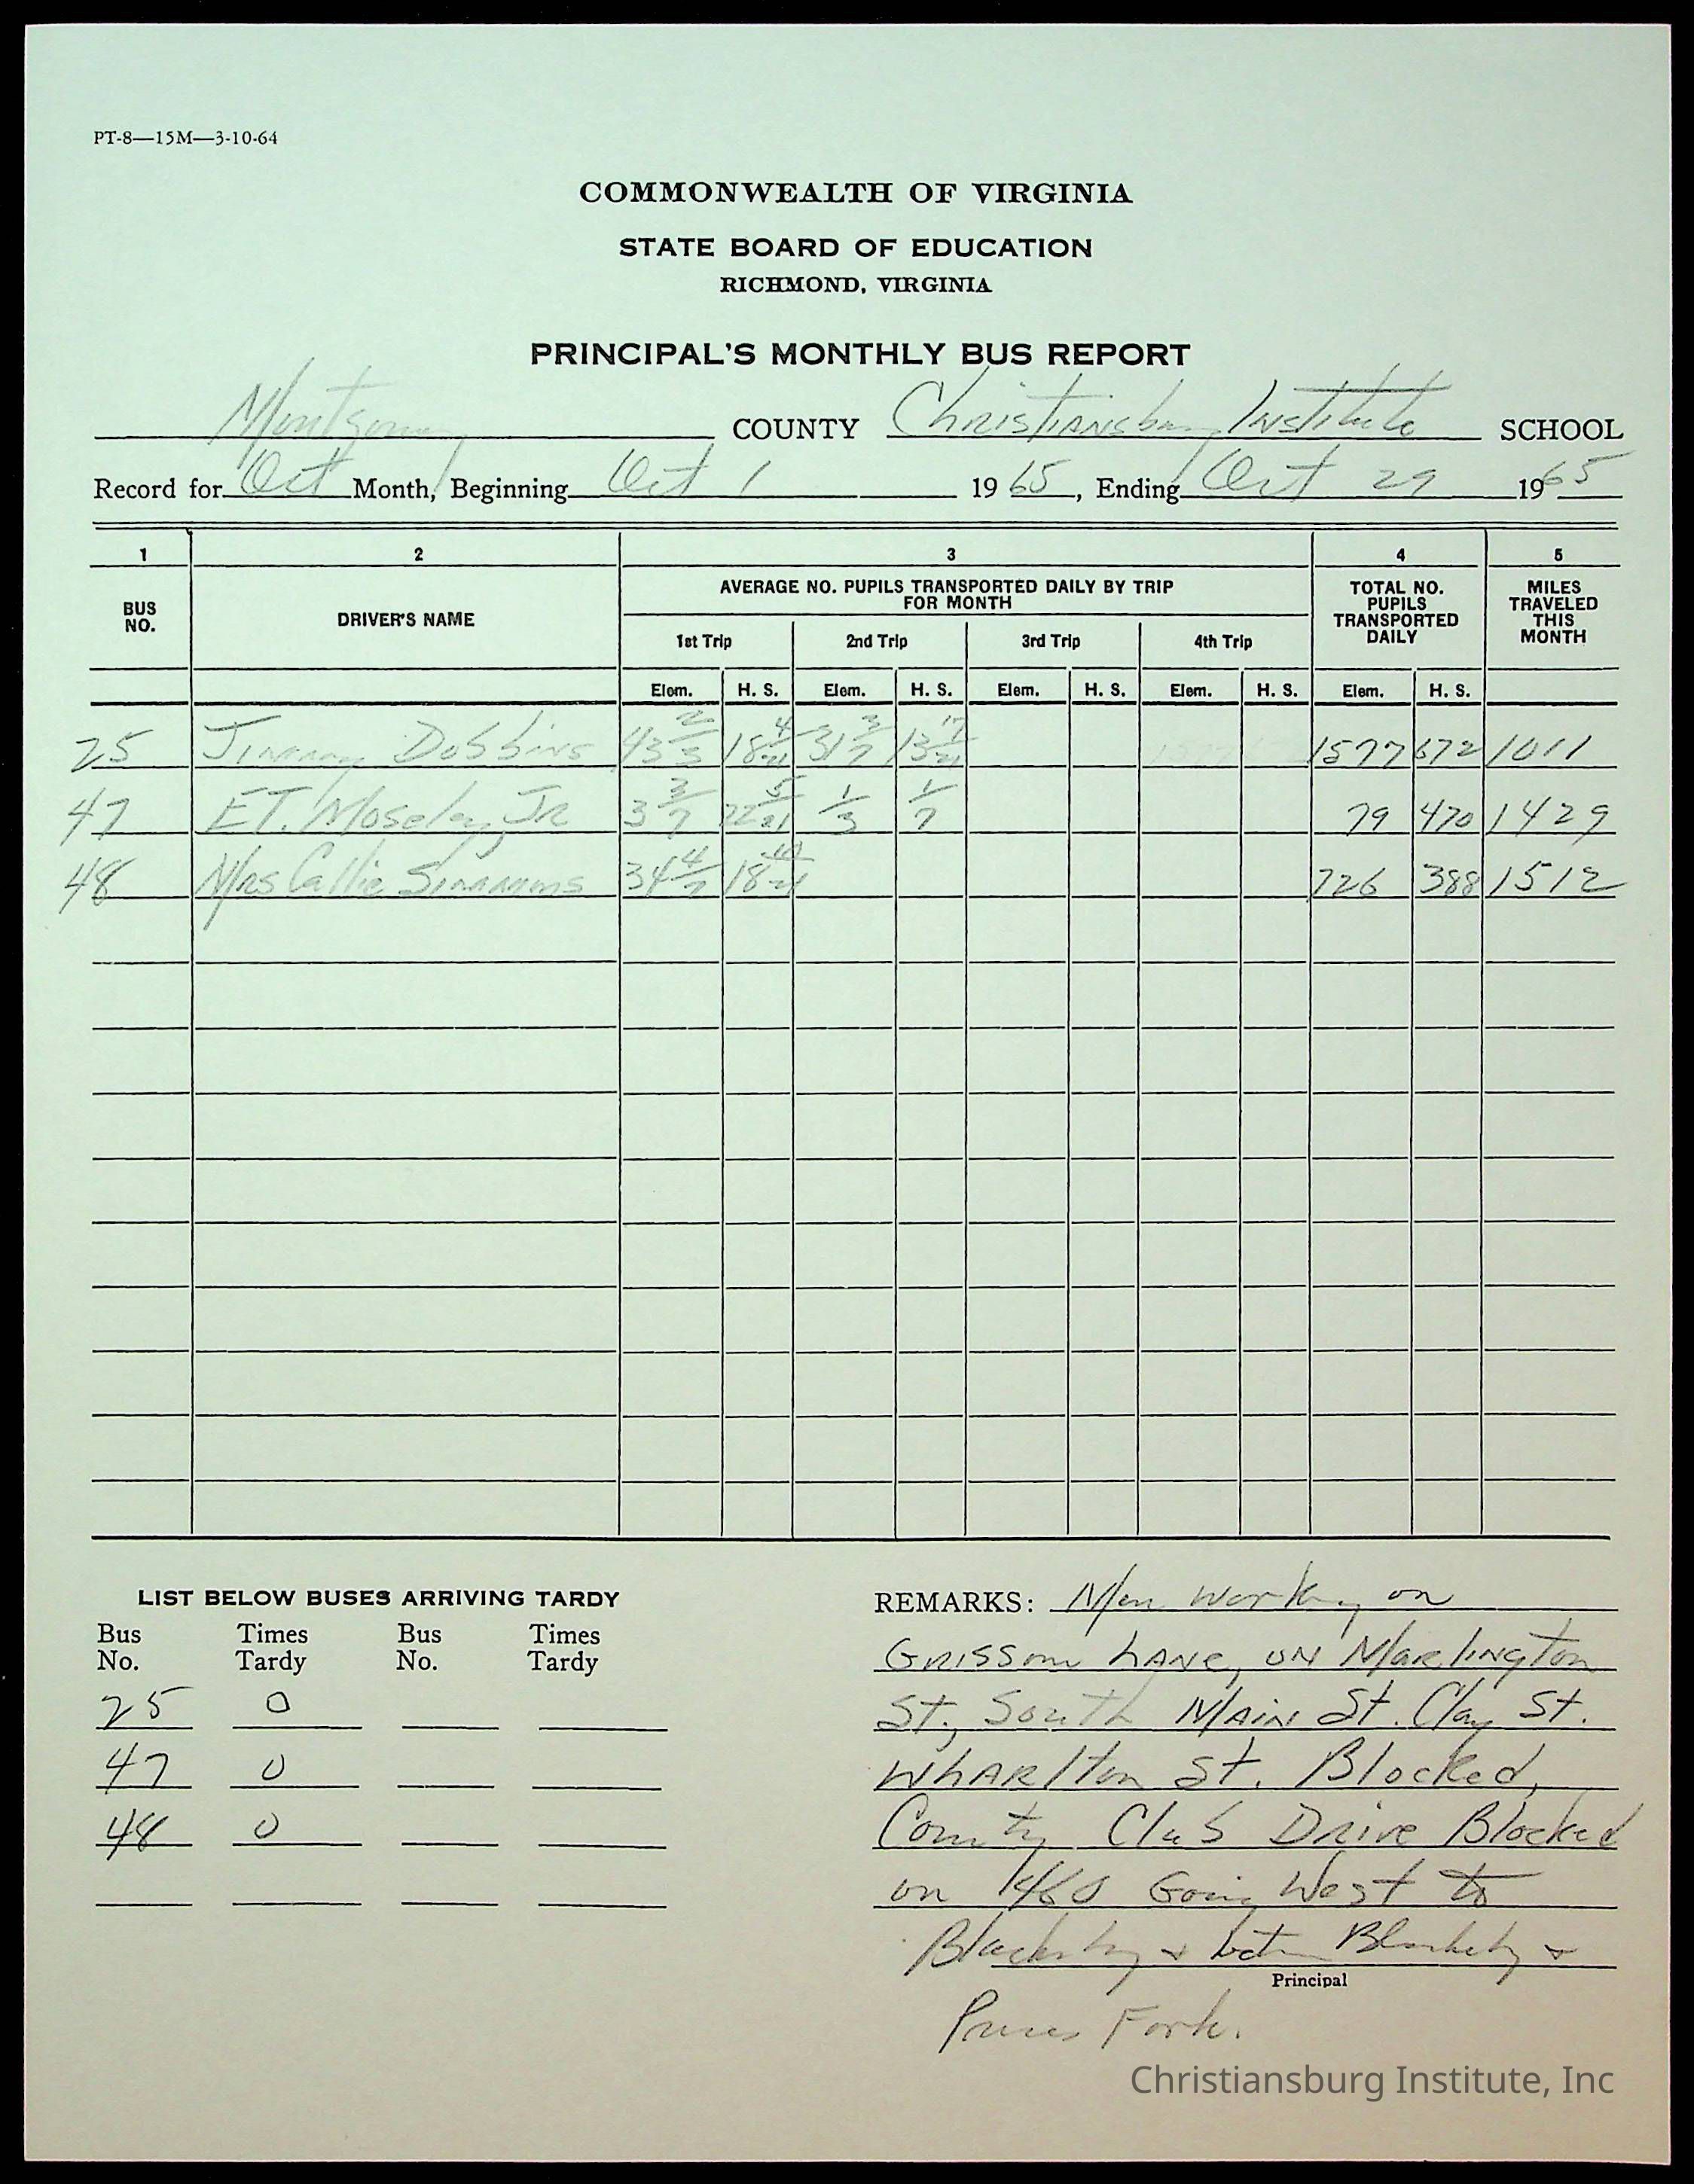 PT-8—15M—3-10-64
COMMONWEALTH OF VIRGINIA
STATE BOARD OF EDUCATION
RICHMOND, VIRGINIA
PRINCIPAL'S MONTHLY BUS REPORT
Montgomery COUNTY Christiansburg Institute SCHOOL
Record for Oct Month, Beginning Oct 1 1965, Ending Oct 29 1965
1 2 3 4 5
BUS NO. DRIVER'S NAME AVERAGE NO. PUPILS TRANSPORTED DAILY BY TRIP FOR MONTH TOTAL NO. PUPILS TRANSPORTED DAILY MILES TRAVELED THIS MONTH
1st Trip 2nd Trip 3rd Trip 4th Trip
Elem. H. S. Elem. H. S. Elem. H. S. Elem. H. S. Elem. H. S.
25 Jimmy Dobbins 43 2/3 18 4/21 31 3/7 13 17/21 1577 672 1011
47 E.T. Moseley, Jr 3 3/7 22 5/21 1/3 1/7 79 470 1429
48 Mrs Callie Simmons 34 4/7 18 10/21 726 388 1512
LIST BELOW BUSES ARRIVING TARDY
Bus No. Times Tardy Bus No. Times Tardy
25 0
47 0
48 0
REMARKS: Men working on
Grissom Lane, on Marlington
St, South Main St. Clay St.
Wharlton St. Blocked,
County Club Drive Blocked
on 460 Going West to
Blacksburg & betn Blacksburg &
Principal
Prices Fork.
Christiansburg Institute, Inc